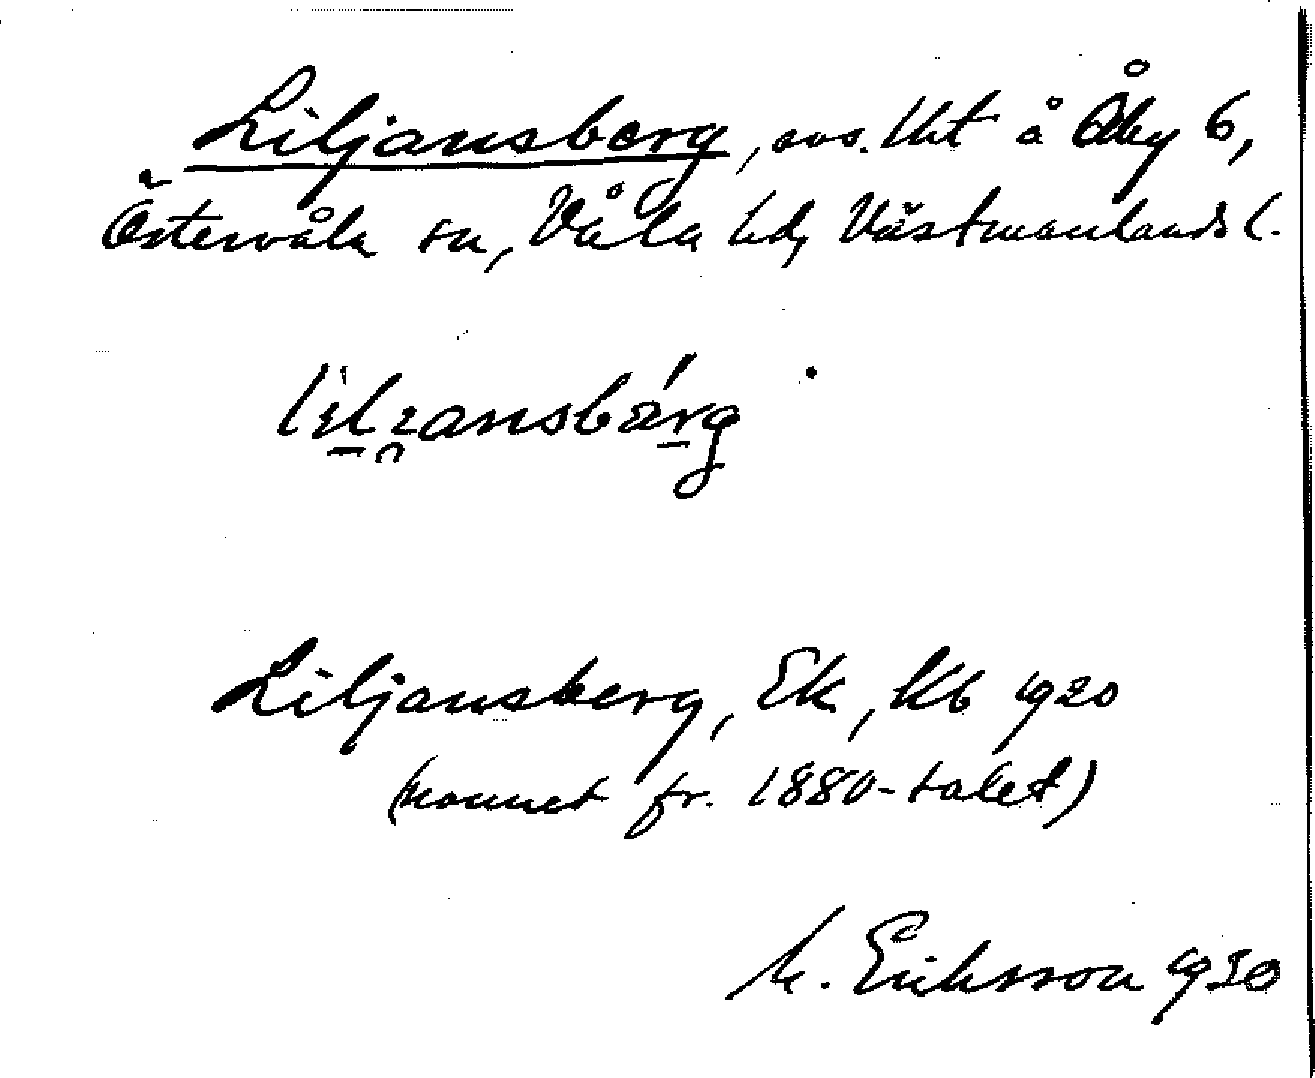 Liljansberg, avs. lht å Åby 6,
Östervåla sn, Våla hd, Västmanlands l.
Liljansberg, Ek, Kb 1920
(namnet fr. 1880-talet)
M. Eriksson 1930